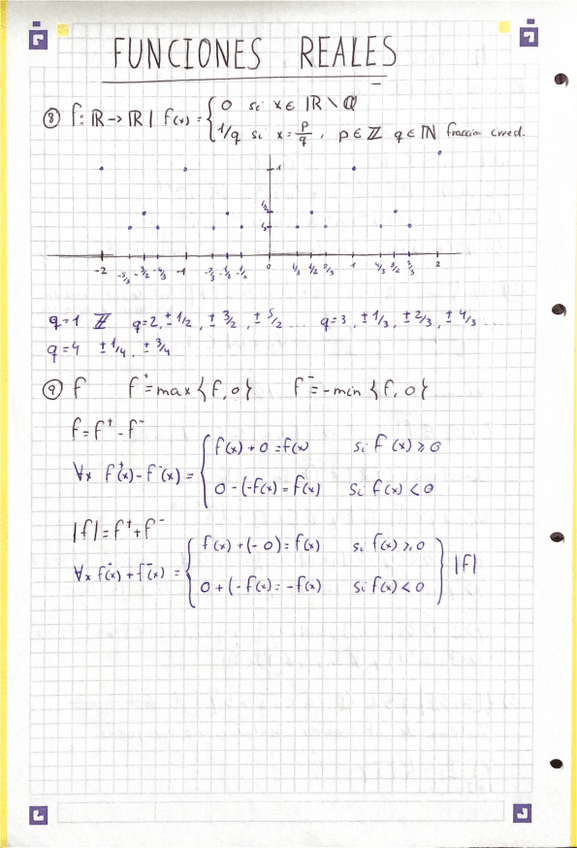 FUNCIONES REALES
⑧ f: ℝ → ℝ | f(x) = { 0 si x ∈ ℝ \ ℚ
1/q si x = p/q , p ∈ ℤ q ∈ ℕ fracción irred.
1
1/2
1/3
-2 -5/3 -3/2 -4/3 -1 -2/3 -1/2 -1/3 0 1/3 1/2 2/3 1 4/3 3/2 5/3 2
q=1 ℤ q=2, ± 1/2 , ± 3/2 , ± 5/2 ... q=3, ± 1/3, ± 2/3, ± 4/3 ...
q=4 ± 1/4, ± 3/4
⑨ f f⁺ = max {f, 0} f⁻ = -min {f, 0}
f = f⁺ - f⁻
∀x f⁺(x) - f⁻(x) = { f(x) + 0 = f(x) si f(x) ≥ 0
0 - (-f(x) = f(x) si f(x) < 0
|f| = f⁺ + f⁻
∀x f⁺(x) + f⁻(x) = { f(x) + (-0) = f(x) si f(x) ≥ 0 } |f|
0 + (-f(x) = -f(x) si f(x) < 0